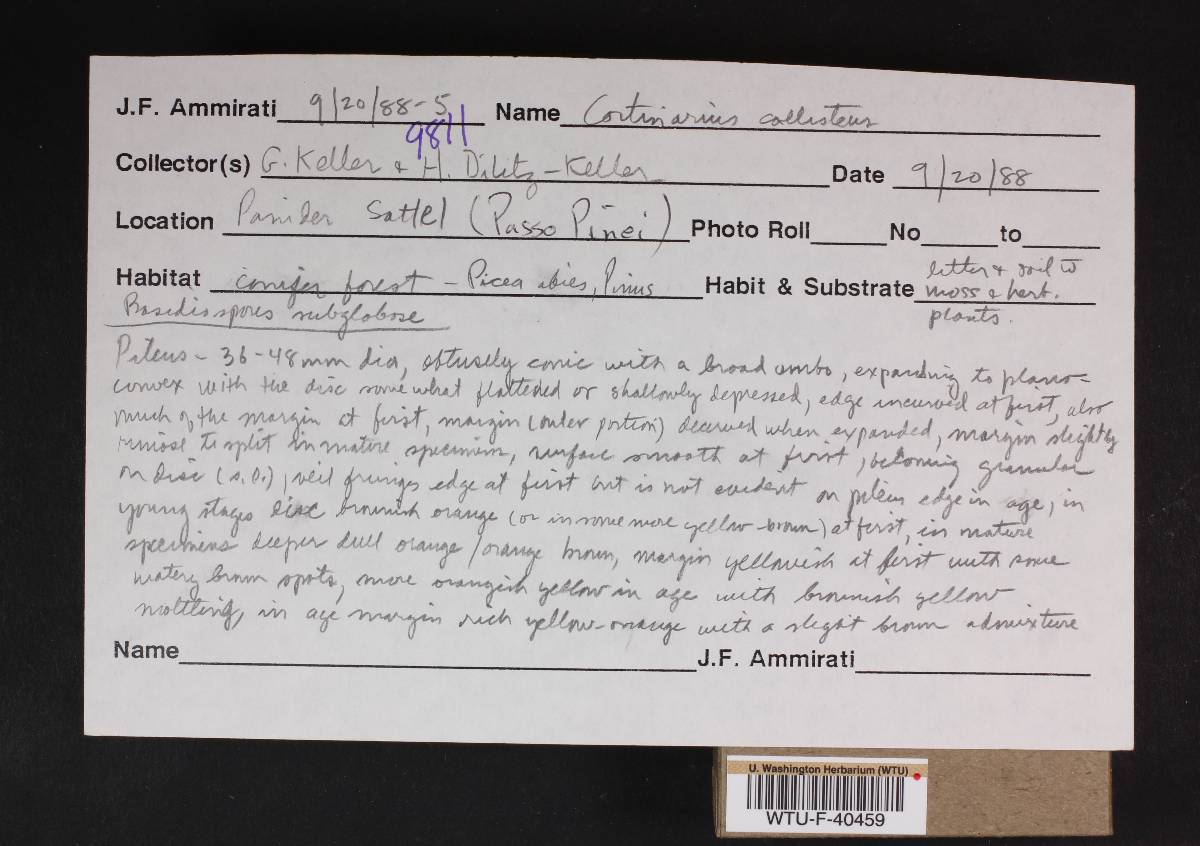 J.F. Ammirati 9/20/88-5 Name Cortinarius callisteus
9811
Collector(s) G. Keller & H. Dilitz-Keller Date 9/20/88
Location Panider Sattel (Passo Pinei) Photo Roll No to
Habitat conifer forest - Picea abies, Pinus Habit & Substrate litter & soil w
moss & herb.
plants.
Basidiospores subglobose
Pileus - 36-48mm dia, obtusely conic with a broad umbo, expanding to plano-
convex with the disc somewhat flattened or shallowly depressed, edge incurved at first, also
much of the margin at first, margin (outer portion) decurved when expanded, margin slightly
rimose to split in mature specimens, surface smooth at first, becoming granular
on disc (s.o.), veil fringes edge at first but is not evident on pileus edge in age, in
young stages disc brownish orange (or in some more yellow-brown) at first, in mature
specimens deeper dull orange/orange brown, margin yellowish at first with some
watery brown spots, more orangish yellow in age with brownish yellow
mottling, in age margin rich yellow-orange with a slight brown admixture
Name J.F. Ammirati
U. Washington Herbarium (WTU)
WTU-F-40459